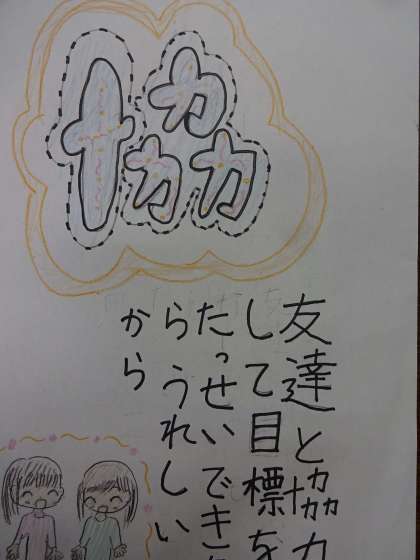 協
友達と協力
して目標を
たっせいでき
らうれしい
から